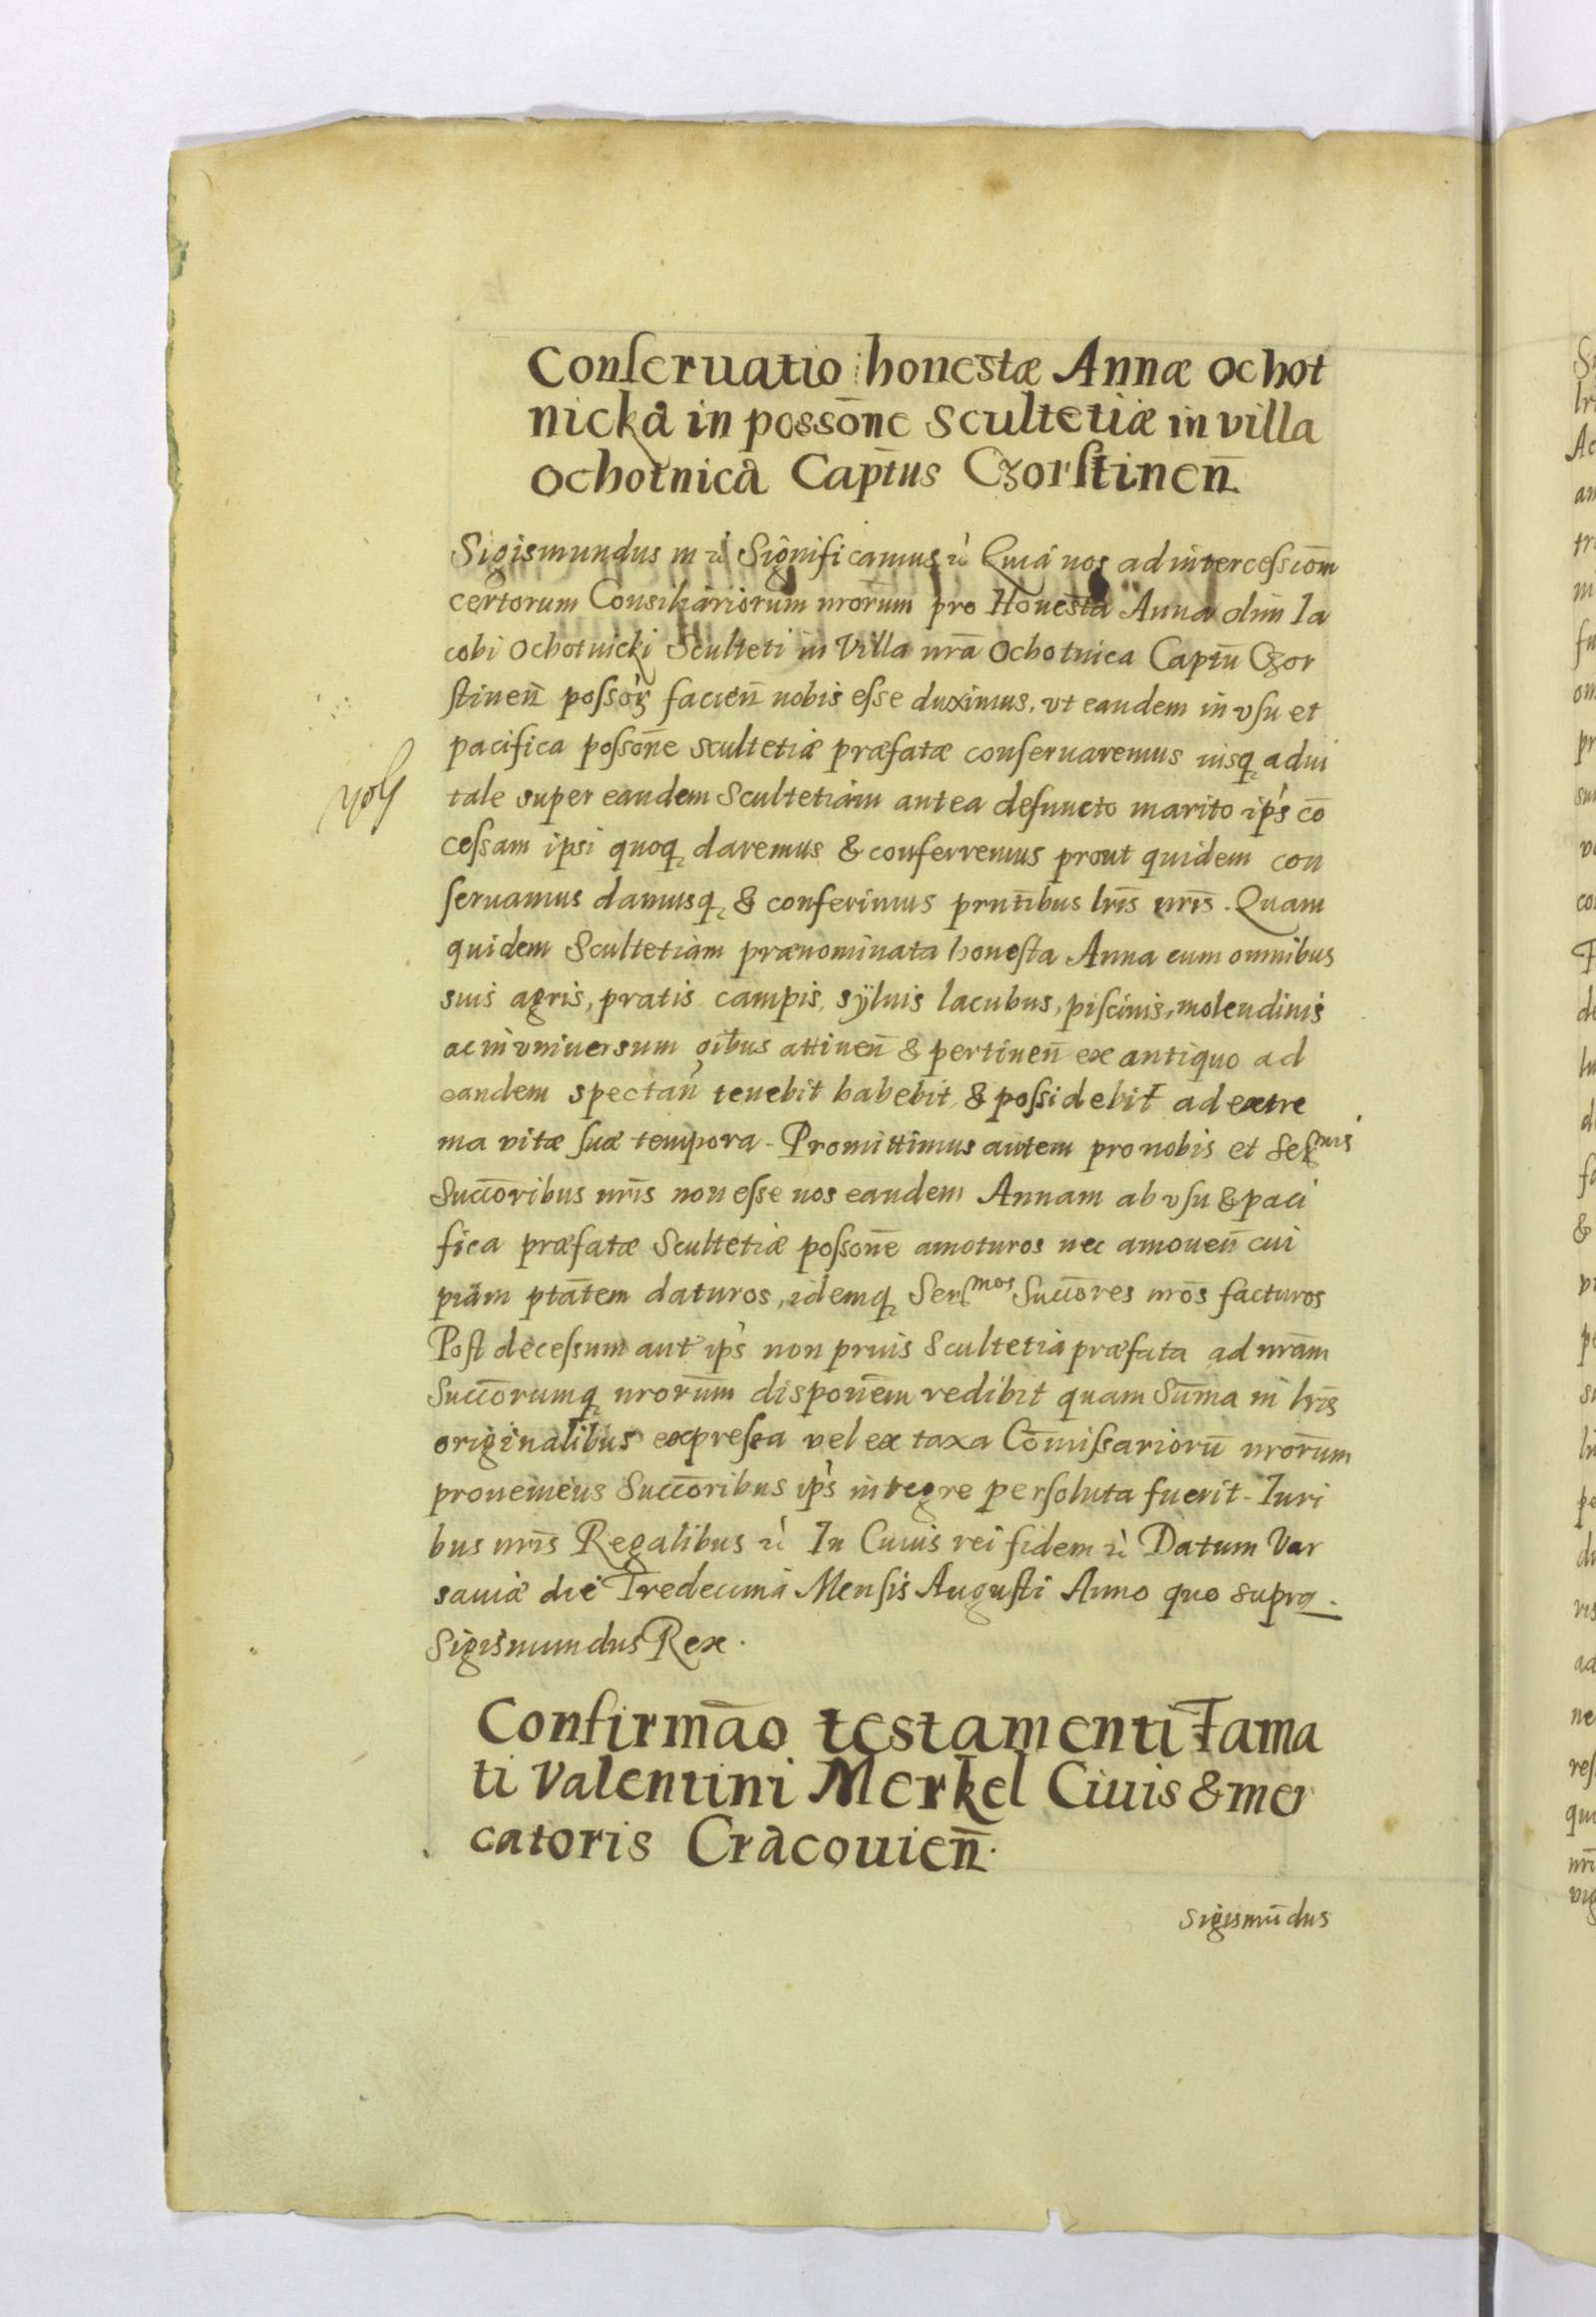 Conseruatio honestæ Annæ Ochot
nicka in possōne Scultetiæ in villa
Ochotnica Capt̄us Czorstinen̄
Sigismundus III ꝛc̀ Significamus ꝛc̀ Quia nos ad intercessiōm
certorum Consiliariorum nrōrum pro Honesta Anna olim Ia
cobi Ochotnicki Sculteti in Villa nrā Ochotnica Captū Czor
stinen̄ possoꝶ facien̄ nobis esse duximus, vt eandem in vsu et
pacifica possōne scultetiæ præfatæ conseruaremus iusq̨ adui
tale super eandem Scultetiam antea defuncto marito ip̀s cō
cessam ipsi quoq̨ daremus & conferremus prout quidem con
seruamus damusq̨ & conferimus prn̄tibus lrīs nrīs. Quam
quidem Scultetiam prænominata honesta Anna cum omnibus
suis agris, pratis campis, sÿluis lacubus, piscinis, molendinis
ac in vniuersum oībus attinen̄ & pertinen̄ ex antiquo ad
eandem spectan̄ tenebit habebit & possidebit ad extre
ma vitæ suæ tempora. Promittimus autem pro nobis et Serᵐⁱˢ
Succōribus nrīs non esse nos eandem Annam ab vsu & paci
fica præfatæ Scultetiæ possōne amoturos nec amouen̄ cui
piam ptātem daturos, idemq̨ Serᵐᵒˢ Succōres nrōs facturos
Post decessum aut̄ ip̀s non prius Scultetia præfata ad nrām
Succōrumq̨ nrōrum disponēm redibit quam Sūma in lrīs
originalibus expressa vel ex taxa Cōmissariorū nrōrum
proueniens Succōribus ip̀s integre persoluta fuerit. Iuri
bus nrīs Regalibus ꝛc̀ In Cuius rei fidem ꝛc̀ Datum Var
sauiæ die Tredecima Mensis Augusti Anno quo supra.
Sigismundus Rex.
Confirmāo testamenti Fama
ti Valentini Merkel Ciuis & mer
catoris Cracouien̄.
Sigismūdus